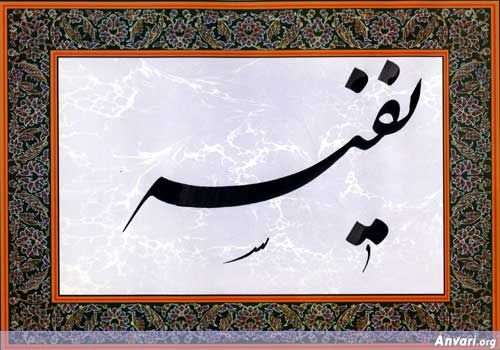 نفیسه
Anvari.org